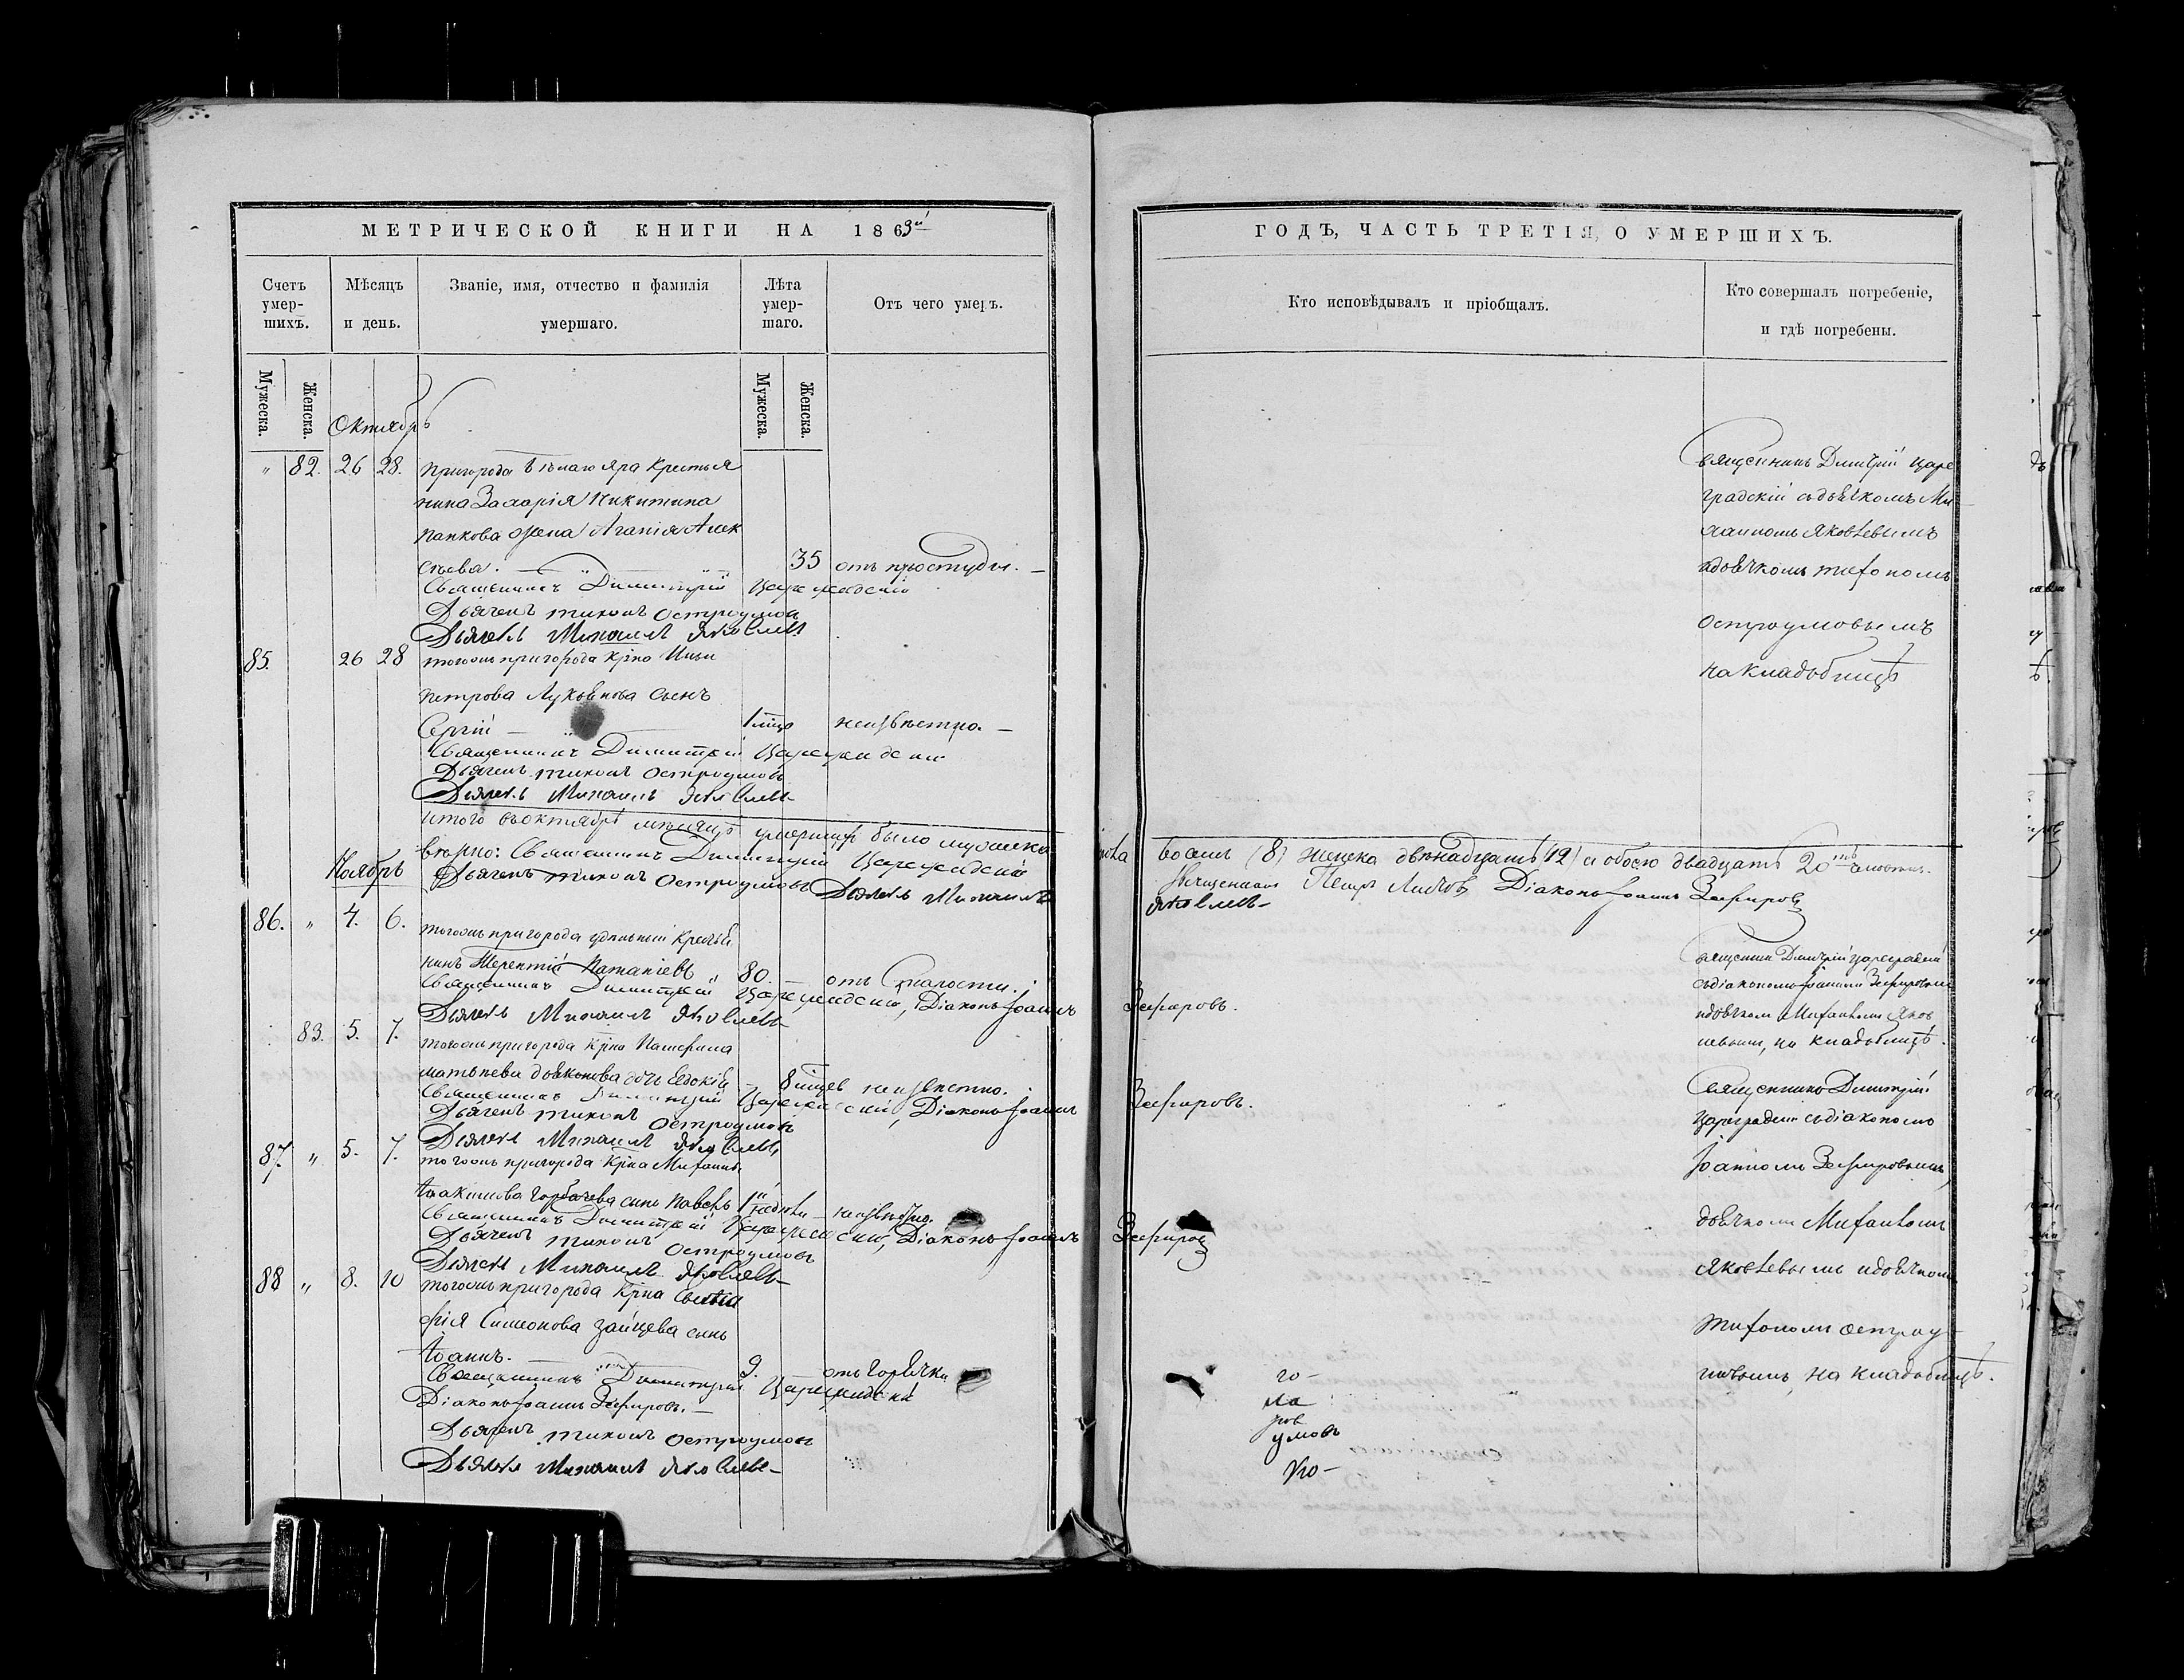 МЕТРИЧЕСКОЙ КНИГИ НА 1863й
Счетъ умер-шихъ.
Мѣсяцъ и день.
Званіе, имя, отчество и фамилія умершаго.
Лѣта умер-шаго.
Отъ чего умеръ.
Мужеска.
Женска.
Мужеска.
Женска.
Октябрь
" 82. 26 28. пригорода Бѣлаго Яра Крестья
нина Захарія Никитина
Панкова жена Агапія Алек
сѣева. — 35 отъ простуды. —
Священникъ Димитрій Цареградскій
Дьячекъ Тихонъ Остроумовъ
Дьячекъ Михаилъ Яковлевъ
85. 26 28 тогожъ пригорода Крна Ильи
Петрова Лукьянова сынъ
Сергій — неизвѣстно. —
Священникъ Димитрій Цареградскій
Дьячекъ Тихонъ Остроумовъ
Дьячекъ Михаилъ Яковлевъ
итого въ октябрѣ мѣсяцѣ умершихъ было мужеска
вѣрно: Священникъ Димитрій Цареградскій
Ноябрь Дьячекъ Тихонъ Остроумовъ Дьячекъ Михаилъ
86. " 4. 6. тогожъ пригорода удѣльный Крестья
нинъ Терентій " 80. — отъ старости.
Священникъ Димитрій Цареградскій, Діаконъ Іоаннъ
Дьячекъ Михаилъ Яковлевъ
83. 5. 7. тогожъ пригорода Крна
Матвѣева дочь Евдокія — 8 неизвѣстно.
Священникъ Димитрій Цареградскій, Діаконъ Іоаннъ
Дьячекъ Тихонъ Остроумовъ
Дьячекъ Михаилъ Яковлевъ
87. " 5. 7. тогожъ пригорода Крна Михаила
Іоакимова Горбачева сынъ Павелъ неизвѣстно.
Священникъ Димитрій Цареградскій, Діаконъ Іоаннъ
Дьячекъ Тихонъ Остроумовъ
Дьячекъ Михаилъ Яковлевъ
88 " 8. 10 тогожъ пригорода Крна
фія Симеонова Зайцева сынъ
Іоаннъ. — 9. отъ горячки
Священникъ Димитрій Цареградскій
Діаконъ Іоаннъ Зефировъ. —
Дьячекъ Тихонъ Остроумовъ
Дьячекъ Михаилъ Яковлевъ
ГОДЪ, ЧАСТЬ ТРЕТІЯ, О УМЕРШИХЪ.
Кто исповѣдывалъ и пріобщалъ.
Кто совершалъ погребеніе, и гдѣ погребены.
Священникъ Димитрій Царе
градскій съ дьячкомъ Ми
хаиломъ Яковлевымъ
и дьячкомъ Тихономъ
Остроумовымъ
на кладбищѣ
восемь (8) женска двѣнадцать (12) и обоего двадцать 20ть
Священникъ Петръ Діаконъ Іоаннъ Зефировъ
Яковлевъ
Священникъ Димитрій Цареградскій
съ діакономъ Іоанномъ Зефировымъ
Зефировъ.
и дьячкомъ Михаиломъ Яков
левымъ, на кладбищѣ.
Священникъ Димитрій
Зефировъ.
Цареградскій съ діакономъ
Іоанномъ Зефировымъ,
дьячкомъ Михаиломъ
Зефировъ
Яковлевымъ и дьячкомъ
Тихономъ Остроу
мовымъ, на кладбищѣ.
го-
ла
ров
умовъ